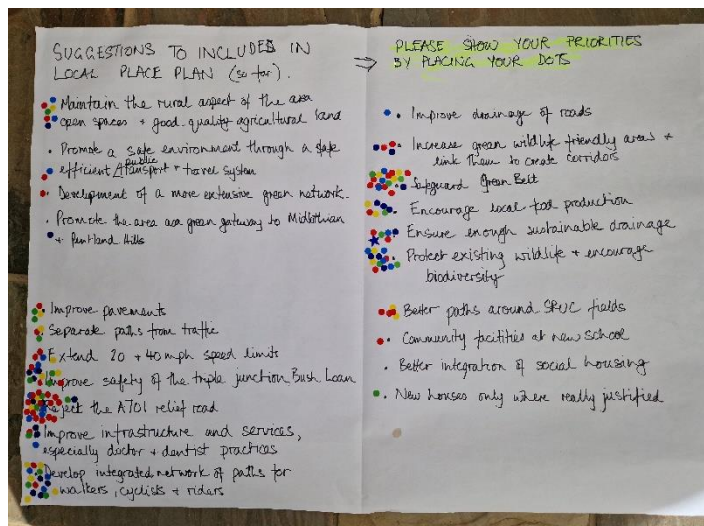 SUGGESTIONS TO INCLUDED IN
LOCAL PLACE PLAN (so far).
Maintain the rural aspect of the area
open spaces + good quality agricultural land
• Promote a safe environment through a safe
efficient public transport + travel system
• Development of a more extensive green network.
• Promote the area as a green gateway to Midlothian
+ Pentland Hills
• Improve pavements
• Separate paths from traffic
• Extend 20 + 40 mph speed limits
Improve safety of the triple junction Bush Loan
Reject the A701 relief road
Improve infrastructure and services,
especially doctor + dentist practices
Develop integrated network of paths for
walkers, cyclists + riders
⇒ PLEASE SHOW YOUR PRIORITIES
BY PLACING YOUR DOTS
• Improve drainage of roads
• Increase green wildlife friendly areas +
link them to create corridors
• Safeguard Green Belt
• Encourage local food production
• Ensure enough sustainable drainage
• Protect existing wildlife + encourage
biodiversity
• Better paths around SRUC fields
• Community facilities at new school
• Better integration of social housing
• New houses only where really justified